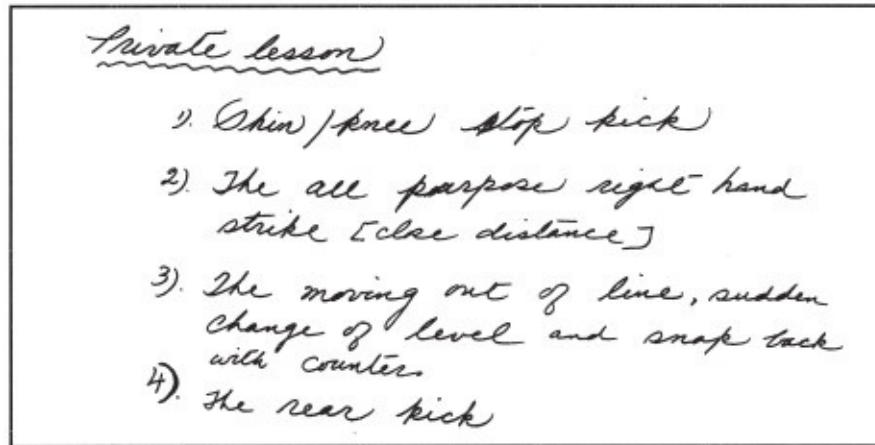 Private lesson
1). Shin/knee stop kick
2). The all purpose right hand
strike [close distance]
3). The moving out of line, sudden
change of level and snap back
with counter.
4). The rear kick